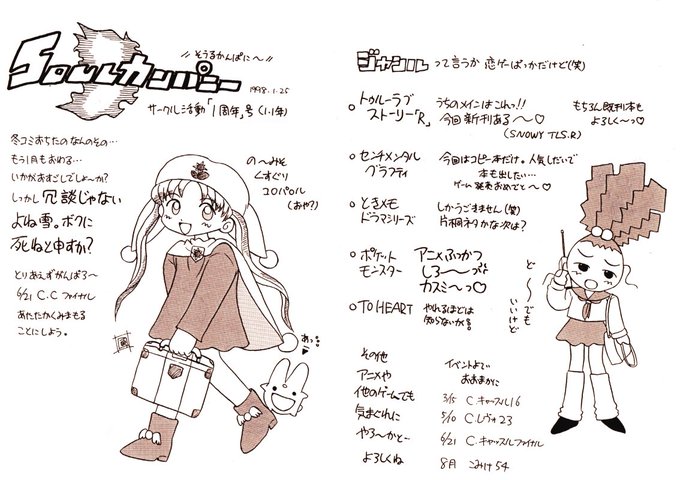 〃そうるかんぱに〜〃
SOULカンパニー
1998.1.25
サークル活動「1周年」号(1.1年)
冬コミおちたのなんのその…
もう1月もおわる…
いかがおすごしでしょーか?
しっかし冗談じゃない
よね雪。ボクに
死ねと申すか?
とりあえずがんばろ〜
6/21 C.Cファイナル
あたたかくみまもる
ことにしよう。
の〜みそ
くすぐり
ユロパロル
(おや?)
あっ
ジャンル って言うか 恋ゲーばっかだけど(笑)
○トゥルーラブ
ストーリー「R」
うちのメインはこれっ!!
今回新刊ある〜♡
(SNOWY TLS.R)
もちろん既刊本も
よろしく〜っ♡
○センチメンタル
グラフティ
今回はコピー本だけ。人気しだいで
本も出したい…
ゲーム発売おめでと〜♡
○ときメモ
ドラマシリーズ
しかうごきません(笑)
片桐ネタかな次は?
○ポケット
モンスター
アニメふっかつ
しろ〜っ
カスミ〜っ♡
○TO HEART
やれるほどは
知らないか
ど〜でも
いいけど
その他
アニメや
他のゲームでも
気まぐれに
やろ〜かと−
よろしくね
イベントよてー
おおまかに
3/15 C.キャッスル16
5/10 C.レヴォ23
6/21 C.キャッスルファイナル
8月 こみけ54